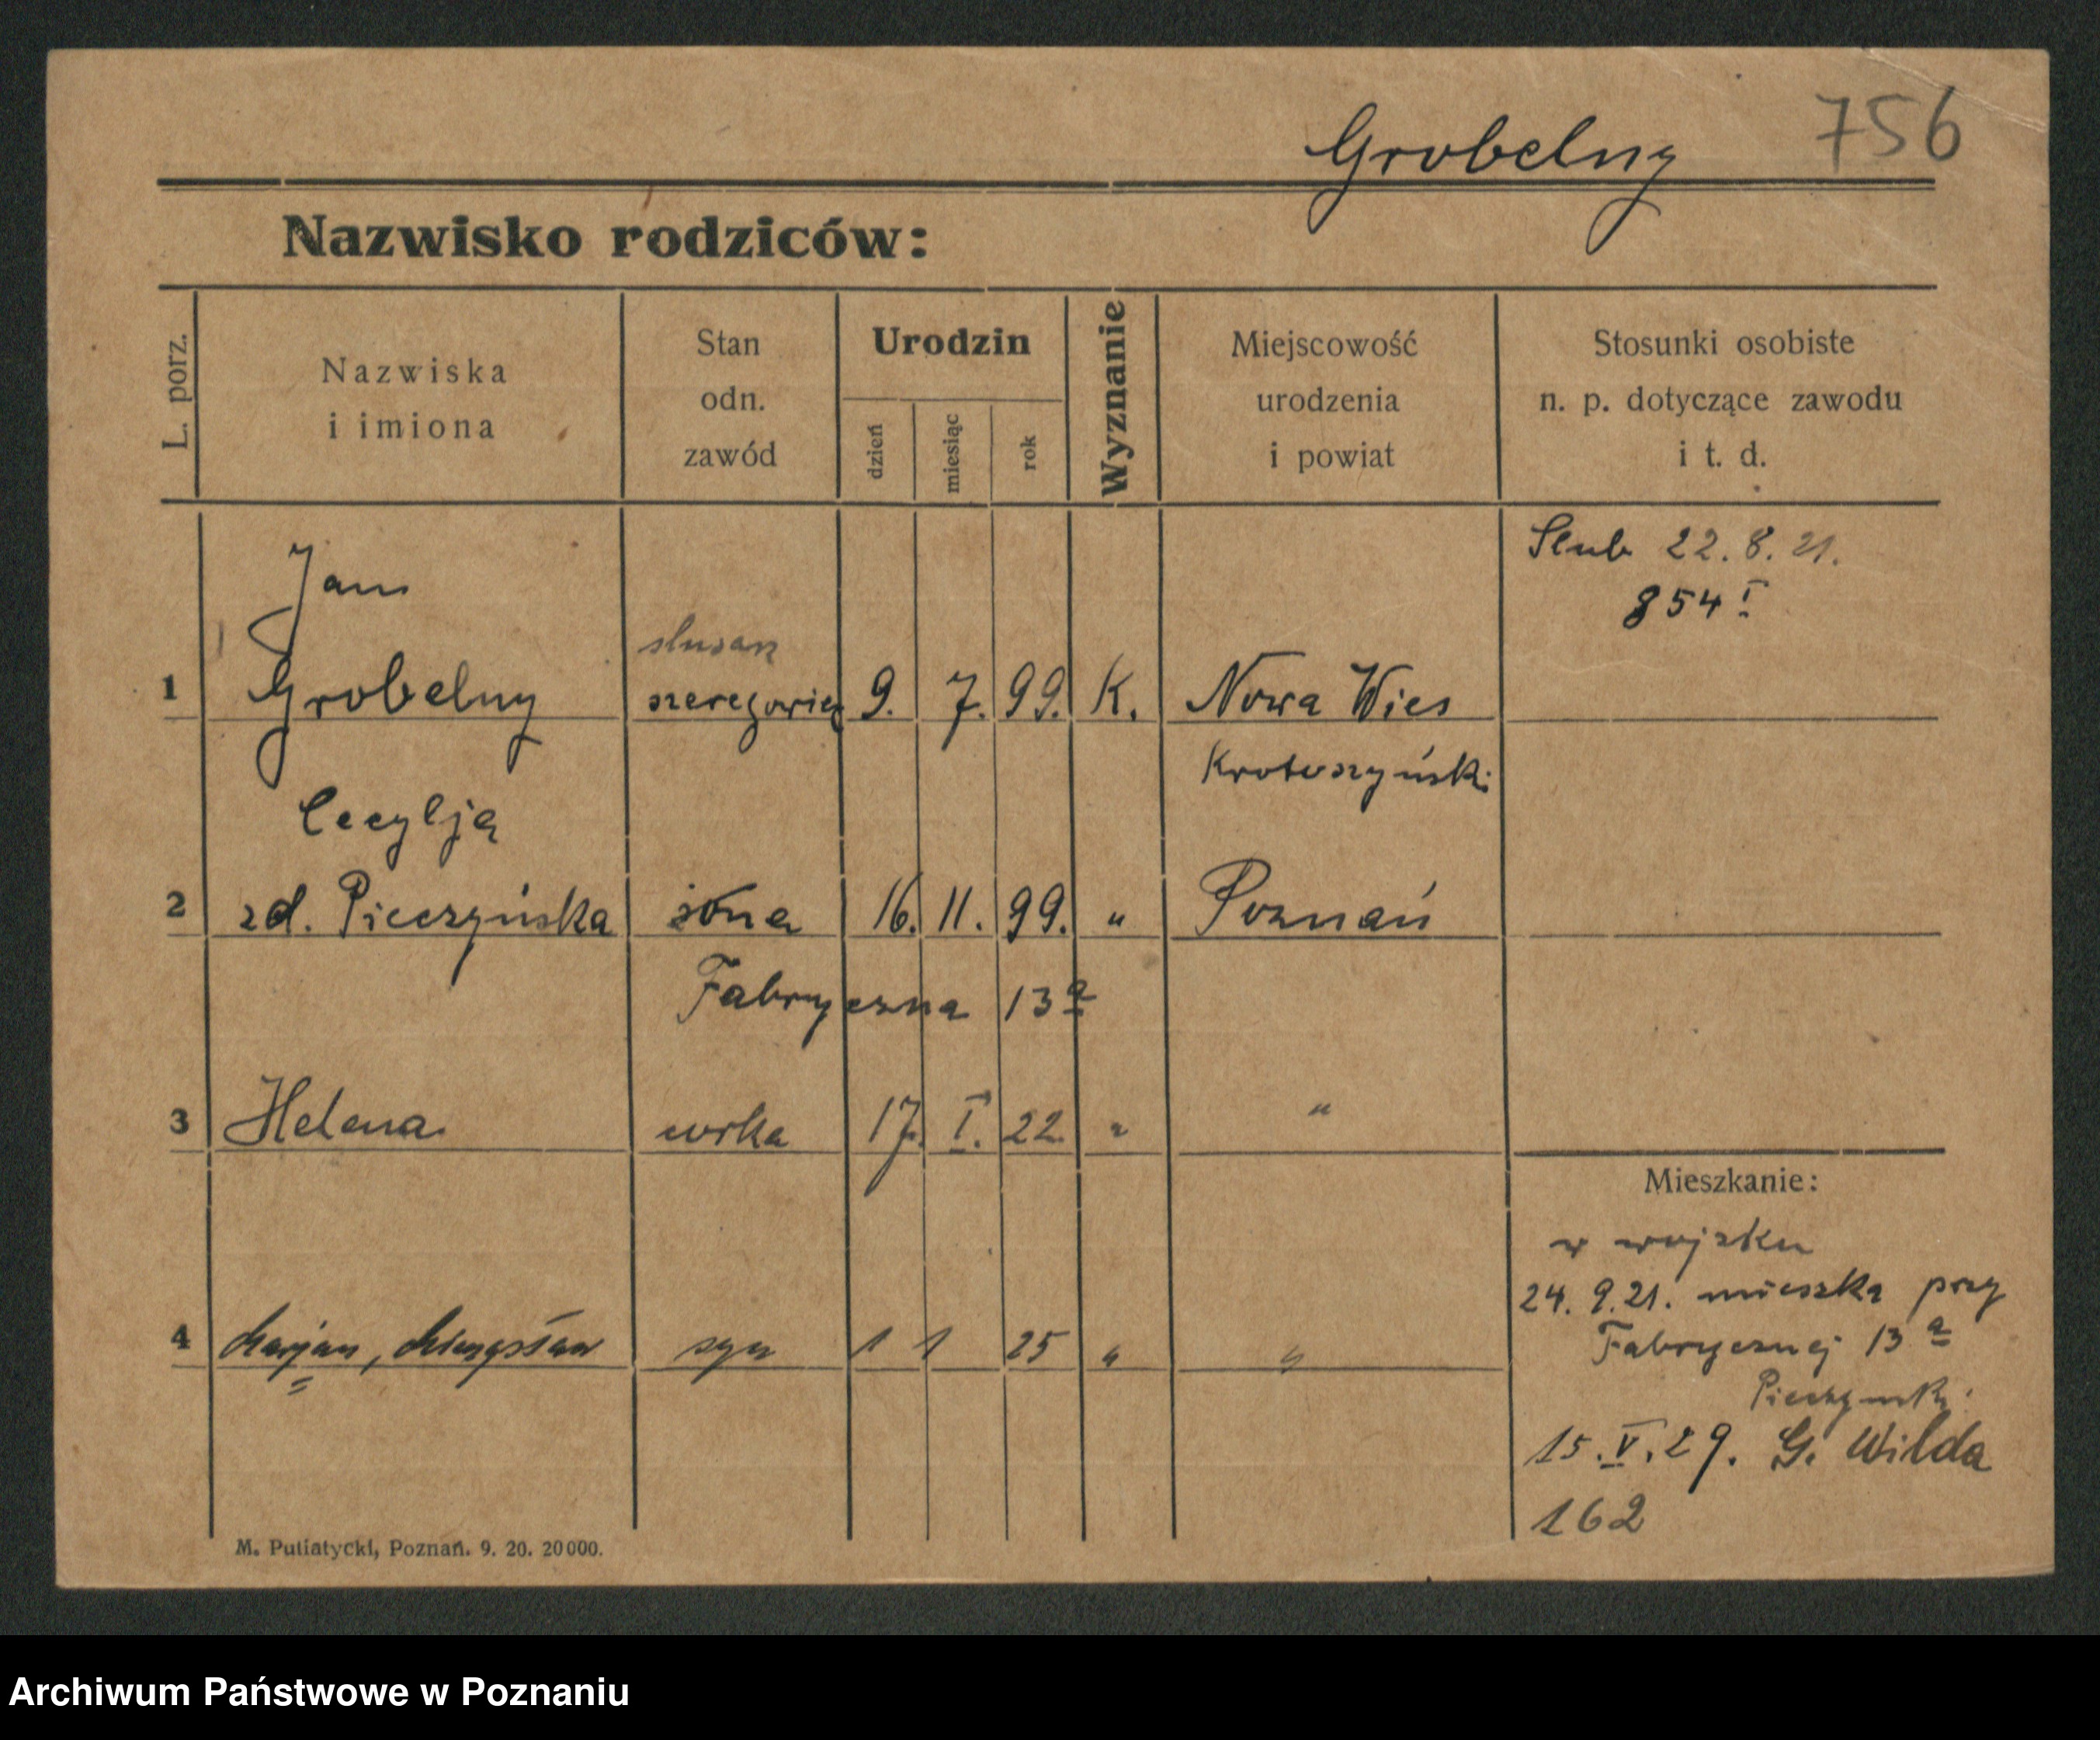 756
Grobelny
Nazwisko rodziców:
L. porz.
Nazwiska
i imiona
Stan
odn.
zawód
Urodzin
dzień
miesiąc
rok
Wyznanie
Miejscowość
urodzenia
i powiat
Stosunki osobiste
n. p. dotyczące zawodu
i t. d.
Slub 22. 8. 21.
854 I
Jan
1 Grobelny szeregowiec 9. 7. 99. K. Nowa Wies
Krotoszyński
Cecylja
2 zd. Pieczyńska żona 16. 11. 99. " Poznań
Fabryczna 13 a
3 Helena córka 17. I. 22. " "
Mieszkanie:
w wojsku
24. 9. 21. mieszka przy
Fabrycznej 13 a
4 Marjan, Mieczysław syn 1 1 25 " "
15. V. 29. G. Wilda
162
M. Putiatycki, Poznań. 9. 20. 20000.
Archiwum Państwowe w Poznaniu